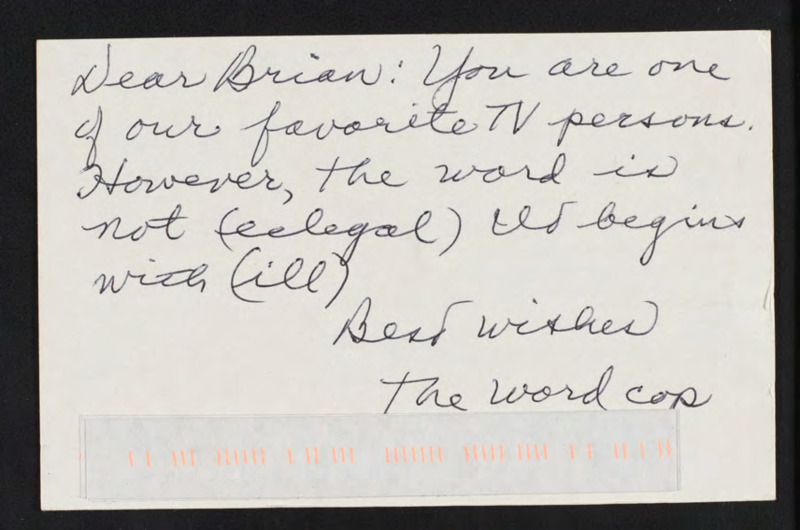 Dear Brian: You are one
of our favorite TV persons.
However, the word is
not (eelegal) It begins
with (ill)
Best wishes
The word cop